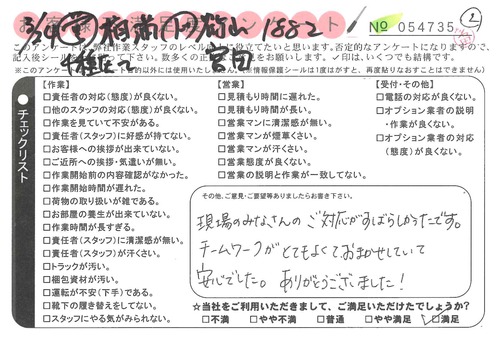 No 054735 ②
このアンケートは、弊社作業スタッフのレベル向上に役立てたいと思います。否定的なアンケートになりますので、
✓印は、いくつでも結構です。
チェックリスト
【作業】
□責任者の対応(態度)が良くない。
□他のスタッフの対応(態度)が良くない。
□作業を見ていて不安がある。
□責任者(スタッフ)に好感が持てない。
□お客様への挨拶が出来ていない。
□ご近所への挨拶・気遣いが無い。
□作業開始前の内容確認がなかった。
□作業開始時間が遅れた。
□荷物の取り扱いが雑である。
□お部屋の養生が出来ていない。
□作業時間が長すぎる。
□責任者(スタッフ)に清潔感が無い。
□責任者(スタッフ)が汗くさい。
□トラックが汚い。
□梱包資材が汚い。
□運転が不安(下手)である。
□靴下の履き替えをしてない。
□スタッフにやる気がみられない。
【営業】
□見積もり時間に遅れた。
□見積もり時間が長い。
□営業マンに清潔感が無い。
□営業マンが煙草くさい。
□営業マンが汗くさい。
□営業態度が良くない。
□営業の説明と作業が一致してない。
【受付・その他】
□電話の対応が良くない。
□オプション業者の説明
・作業が良くない。
□オプション業者の対応
(態度)が良くない。
その他、ご意見・ご要望等ありましたらお書き下さい。
現場のみなさんのご対応がすばらしかったです。
チームワークがとてもよくておまかせしていて
安心でした。ありがとうございました！
☆当社をご利用いただきまして、ご満足いただけたでしょうか？
□不満 □やや不満 □普通 □やや満足 ☑満足